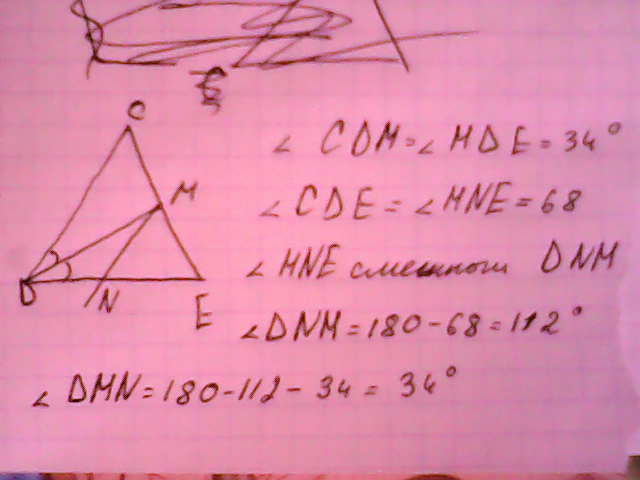 C
M
D
N
E
∠ CDM = ∠ MDE = 34°
∠ CDE = ∠ MNE = 68
∠ MNE смежном DNM
∠ DNM = 180 - 68 = 112°
∠ DMN = 180 - 112 - 34 = 34°